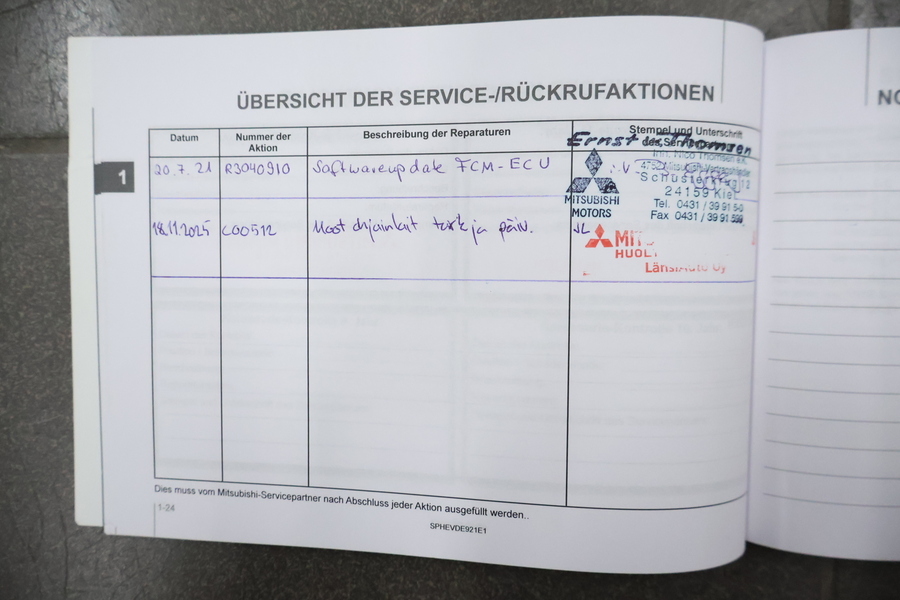 ÜBERSICHT DER SERVICE-/RÜCKRUFAKTIONEN
NO
Datum
Nummer der
Aktion
Beschreibung der Reparaturen
Stempel und Unterschrift
Ernst Thomsen
1
20.7.21 R3040910 Softwareupdate FCM-ECU
Schusterkrug 12
24159 Kiel
MITSUBISHI
MOTORS
Tel. 0431 / 39 91 5-0
Fax 0431 / 39 91 599
18.11.2025 C00512 tark ja päiv. JL
HUOL
LänsiAuto Oy
Dies muss vom Mitsubishi-Servicepartner nach Abschluss jeder Aktion ausgefüllt werden..
1-24
SPHEVDE921E1